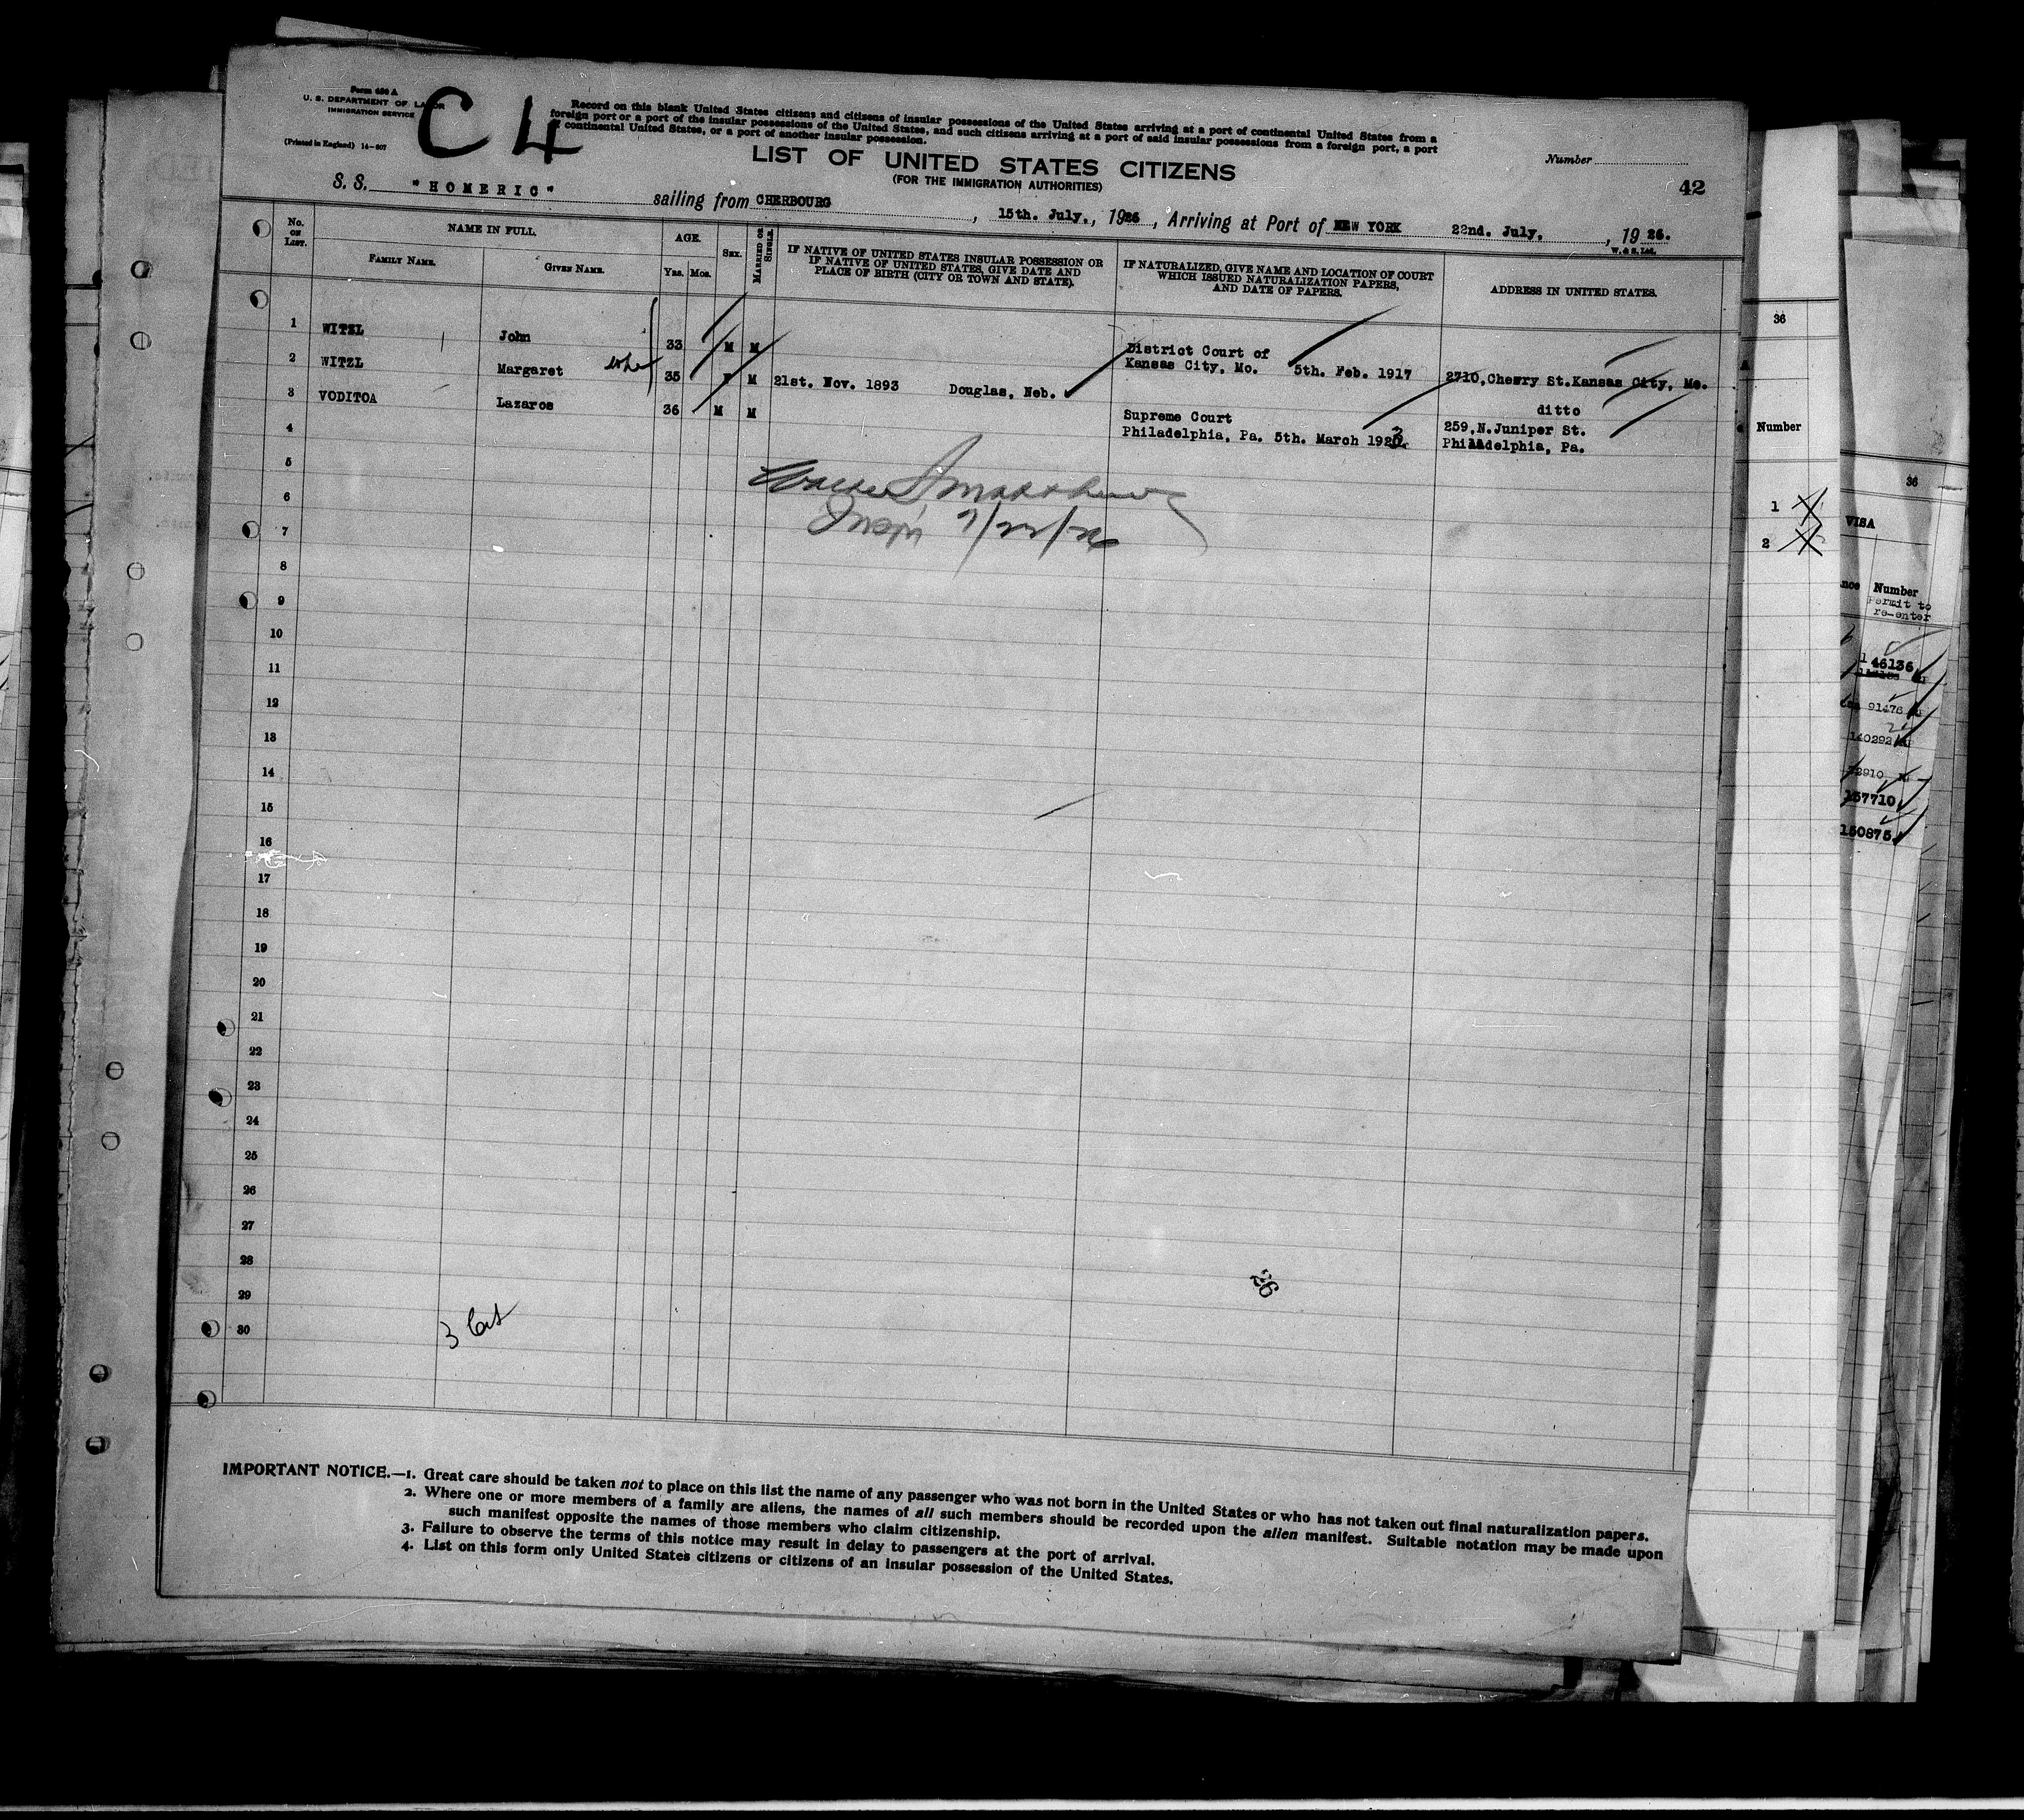 Form 456 A
U. S. DEPARTMENT OF LABOR
IMMIGRATION SERVICE
(Printed in England) 14-607
C 4
Record on this blank United States citizens and citizens of insular possessions of the United States arriving at a port of continental United States from a
foreign port or a port of the insular possessions of the United States, and such citizens arriving at a port of said insular possessions from a foreign port, a port
continental United States, or a port of another insular possession.
LIST OF UNITED STATES CITIZENS
(FOR THE IMMIGRATION AUTHORITIES)
Number
42
S. S. "HOMERIC" sailing from CHERBOURG, 15th. July., 1926, Arriving at Port of NEW YORK 22nd. July, , 1926.
W. & S. Ltd.
No. ON LIST.
NAME IN FULL.
FAMILY NAME.
GIVEN NAME.
AGE.
YRS. MOS.
SEX.
MARRIED OR SINGLE.
IF NATIVE OF UNITED STATES INSULAR POSSESSION OR
IF NATIVE OF UNITED STATES, GIVE DATE AND
PLACE OF BIRTH (CITY OR TOWN AND STATE).
IF NATURALIZED, GIVE NAME AND LOCATION OF COURT
WHICH ISSUED NATURALIZATION PAPERS,
AND DATE OF PAPERS.
ADDRESS IN UNITED STATES.
1 WITZL John 33 M M District Court of
Kansas City, Mo. 5th. Feb. 1917 2710,Cherry St.Kansas City, Mo.
2 WITZL Margaret 35 F M 21st. Nov. 1893 Douglas, Neb. ditto
3 VODITOA Lazaros 36 M M Supreme Court 259,N.Juniper St.
Philadelphia, Pa. 5th. March 1923 Philadelphia, Pa.
4
5
6
7
Insp'r 7/22/26
8
9
10
11
12
13
14
15
16
17
18
19
20
21
22
23
24
25
26
27
28
29
30
26
3
IMPORTANT NOTICE.—1. Great care should be taken not to place on this list the name of any passenger who was not born in the United States or who has not taken out final naturalization papers.
2. Where one or more members of a family are aliens, the names of all such members should be recorded upon the alien manifest. Suitable notation may be made upon
such manifest opposite the names of those members who claim citizenship.
3. Failure to observe the terms of this notice may result in delay to passengers at the port of arrival.
4. List on this form only United States citizens or citizens of an insular possession of the United States.
36
Number
1
2
36
VISA
Number
Permit to
re-enter
46136
91476
140292
157710
150875